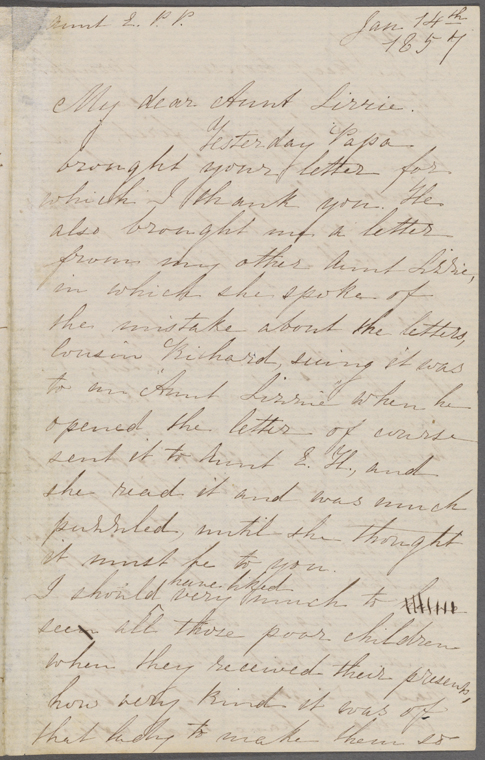 Aunt E. P. P.
Jan 14th
1857
My dear Aunt Lizzie.
Yesterday Papa
brought your letter for
which I thank you. He
also brought me a letter
from my other Aunt Lizzie,
in which she spoke of
the mistake about the letters,
Cousin Richard, seeing it was
to an Aunt Lizzie when he
opened the letter of course
sent it to Aunt E. H., and
she read it and was much
puzziled, until she thought
it must be to you.
have liked
I should very much to
seen all those poor children
when they received their presents,
how very kind it was of
that lady to make them so